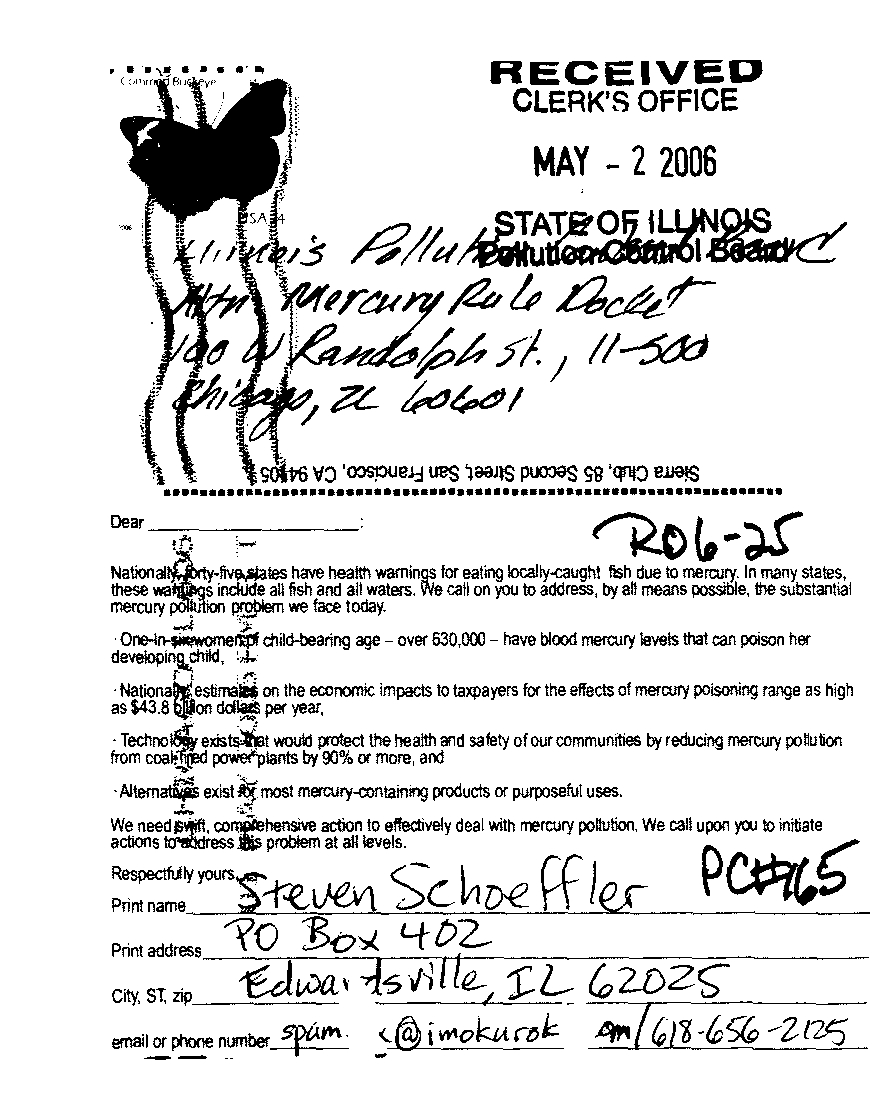 Common Buckeye
RECEIVED
CLERK'S OFFICE
MAY - 2 2006
STATE OF ILLINOIS
Pollution Control Board
USA 24
2006
Illinois Pollution Control Board
Attn Mercury Rule Docket
100 W Randolph St., 11-500
Chicago, IL 60601
Sierra Club, 85 Second Street, San Francisco, CA 94105
Dear :
R06-25
Nationally, forty-five states have health warnings for eating locally-caught fish due to mercury. In many states,
these warnings include all fish and all waters. We call on you to address, by all means possible, the substantial
mercury pollution problem we face today.
· One-in-six women of child-bearing age – over 630,000 – have blood mercury levels that can poison her
developing child,
· Nationally, estimates on the economic impacts to taxpayers for the effects of mercury poisoning range as high
as $43.8 billion dollars per year,
· Technology exists that would protect the health and safety of our communities by reducing mercury pollution
from coal-fired power plants by 90% or more, and
· Alternatives exist for most mercury-containing products or purposeful uses.
We need swift, comprehensive action to effectively deal with mercury pollution. We call upon you to initiate
actions to address this problem at all levels.
Respectfully yours,
PC#765
Print name Steven Schoeffler
Print address PO Box 402
City, ST, zip Edwardsville, IL 62025
email or phone number spam @imokurok /618-656-2125